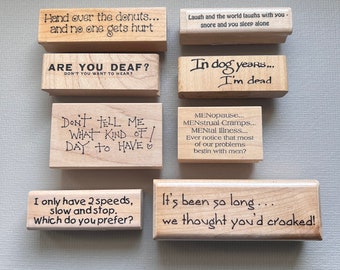 Hand over the donuts...
and no one gets hurt
Laugh and the world laughs with you -
snore and you sleep alone
ARE YOU DEAF?
DON'T YOU WANT TO HEAR?
In dog years...
I'm dead
DON'T TELL ME
WHAT KIND OF
DAY TO HAVE!
MENopause...
MENstrual Cramps...
MENtal Illness...
Ever notice that most
of our problems
begin with men?
I only have 2 speeds,
slow and stop.
Which do you prefer?
It's been so long . . .
we thought you'd croaked!